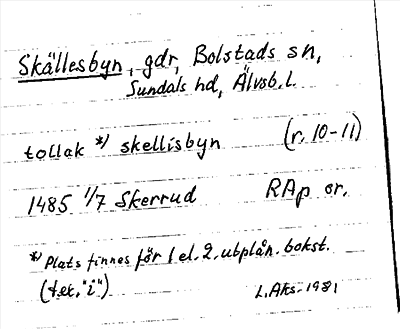 Skällesbyn, gdr, Bolstads sn,
Sundals hd, Älvsb. l.
tollak *) skellisbyn (r. 10-11)
1485 1/7 Skerrud RAp or.
*) Plats finnes för 1 el. 2 utplån. bokst.
(t.ex. "i")
L.Aks. 1981